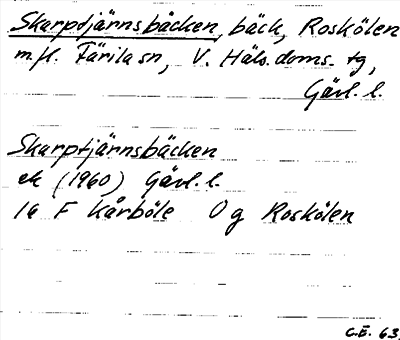 Skarptjärnsbäcken, bäck, Roskölen
m.fl. Färila sn, V. Häls. doms. tg,
Gävl. l.
Skarptjärnsbäcken
ek (1960) Gävl. l.
16 F Kårböle 0 g Roskölen
C.E. 63.